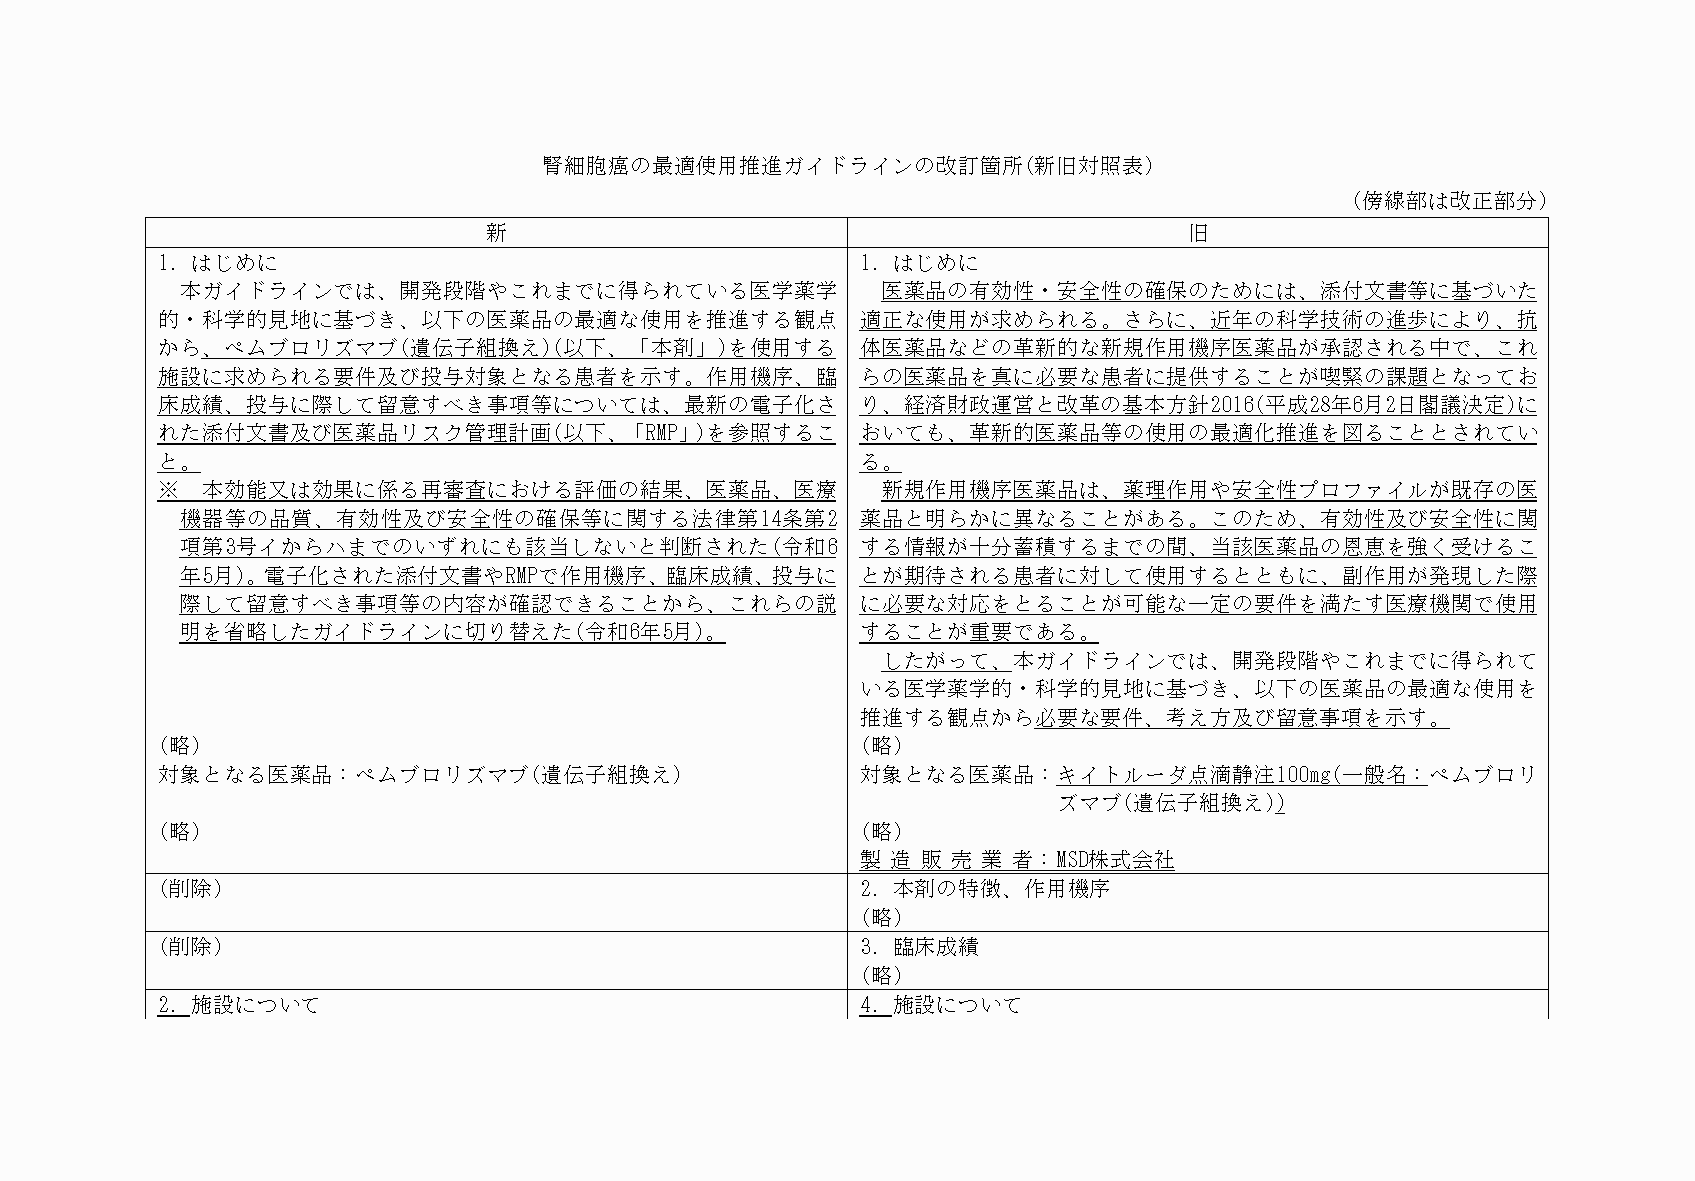 腎細胞癌の最適使用推進ガイドラインの改訂箇所(新旧対照表)
(傍線部は改正部分)
新
旧
1. はじめに
本ガイドラインでは、開発段階やこれまでに得られている医学薬学
的・科学的見地に基づき、以下の医薬品の最適な使用を推進する観点
から、ペムブロリズマブ(遺伝子組換え)(以下、「本剤」)を使用する
施設に求められる要件及び投与対象となる患者を示す。作用機序、臨
床成績、投与に際して留意すべき事項等については、最新の電子化さ
れた添付文書及び医薬品リスク管理計画(以下、「RMP」)を参照するこ
と。
※　本効能又は効果に係る再審査における評価の結果、医薬品、医療
機器等の品質、有効性及び安全性の確保等に関する法律第14条第2
項第3号イからハまでのいずれにも該当しないと判断された(令和6
年5月)。電子化された添付文書やRMPで作用機序、臨床成績、投与に
際して留意すべき事項等の内容が確認できることから、これらの説
明を省略したガイドラインに切り替えた(令和6年5月)。
(略)
対象となる医薬品：ペムブロリズマブ(遺伝子組換え)
(略)
1. はじめに
医薬品の有効性・安全性の確保のためには、添付文書等に基づいた
適正な使用が求められる。さらに、近年の科学技術の進歩により、抗
体医薬品などの革新的な新規作用機序医薬品が承認される中で、これ
らの医薬品を真に必要な患者に提供することが喫緊の課題となってお
り、経済財政運営と改革の基本方針2016(平成28年6月2日閣議決定)に
おいても、革新的医薬品等の使用の最適化推進を図ることとされてい
る。
新規作用機序医薬品は、薬理作用や安全性プロファイルが既存の医
薬品と明らかに異なることがある。このため、有効性及び安全性に関
する情報が十分蓄積するまでの間、当該医薬品の恩恵を強く受けるこ
とが期待される患者に対して使用するとともに、副作用が発現した際
に必要な対応をとることが可能な一定の要件を満たす医療機関で使用
することが重要である。
したがって、本ガイドラインでは、開発段階やこれまでに得られて
いる医学薬学的・科学的見地に基づき、以下の医薬品の最適な使用を
推進する観点から必要な要件、考え方及び留意事項を示す。
(略)
対象となる医薬品：キイトルーダ点滴静注100mg(一般名：ペムブロリ
ズマブ(遺伝子組換え))
(略)
製 造 販 売 業 者：MSD株式会社
(削除)
2. 本剤の特徴、作用機序
(略)
(削除)
3. 臨床成績
(略)
2. 施設について
4. 施設について